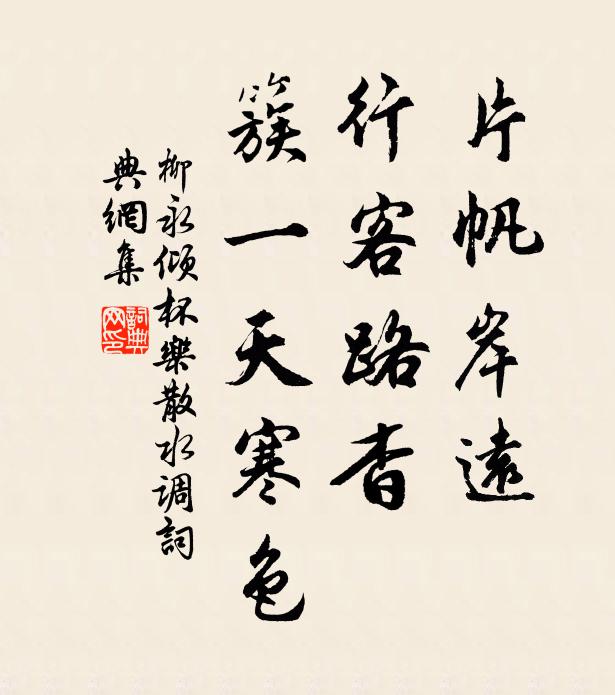 片帆岸遠
行客路杳
簇一天寒色
柳永傾杯樂散水调詞
典網集
詞典
网印